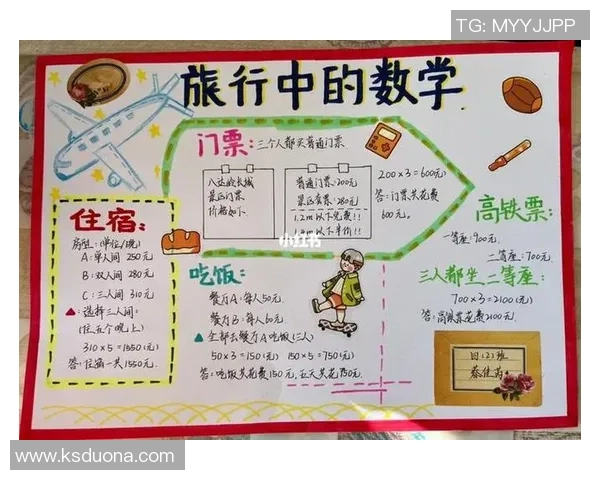 TG: MYYJJPP
旅行中的数学
门票:三个人都买普通门票
八达岭长城
景区门票
价格如下:
普通门票:200元
景区套票:280元
1.2m以下免费!!
1.2m以下半价!!
200×3=600(元)
答:门票共花费
600元。
小红书
住宿:
房型:(单位/晚)
A:单人间 250元
B:双人间 280元
C:三人间 310元
▲:选择三人间:
(住五个晚上)
310×5=1550(元)
答:住宿一共1550元.
吃饭:
餐厅A:每人50元.
餐厅B:每人60元.
▲全部去餐厅A吃饭(三人)
50×3=150(元) 150×5=750(元)
答:吃饭共花费150元,五天共花750元.
高铁票:
一等座:900元.
二等座:700元.
三人都坐二等座:
700×3=2100(元)
答:高铁票花费2100元.
四(2)班
蔡佳
www.ksduona.com